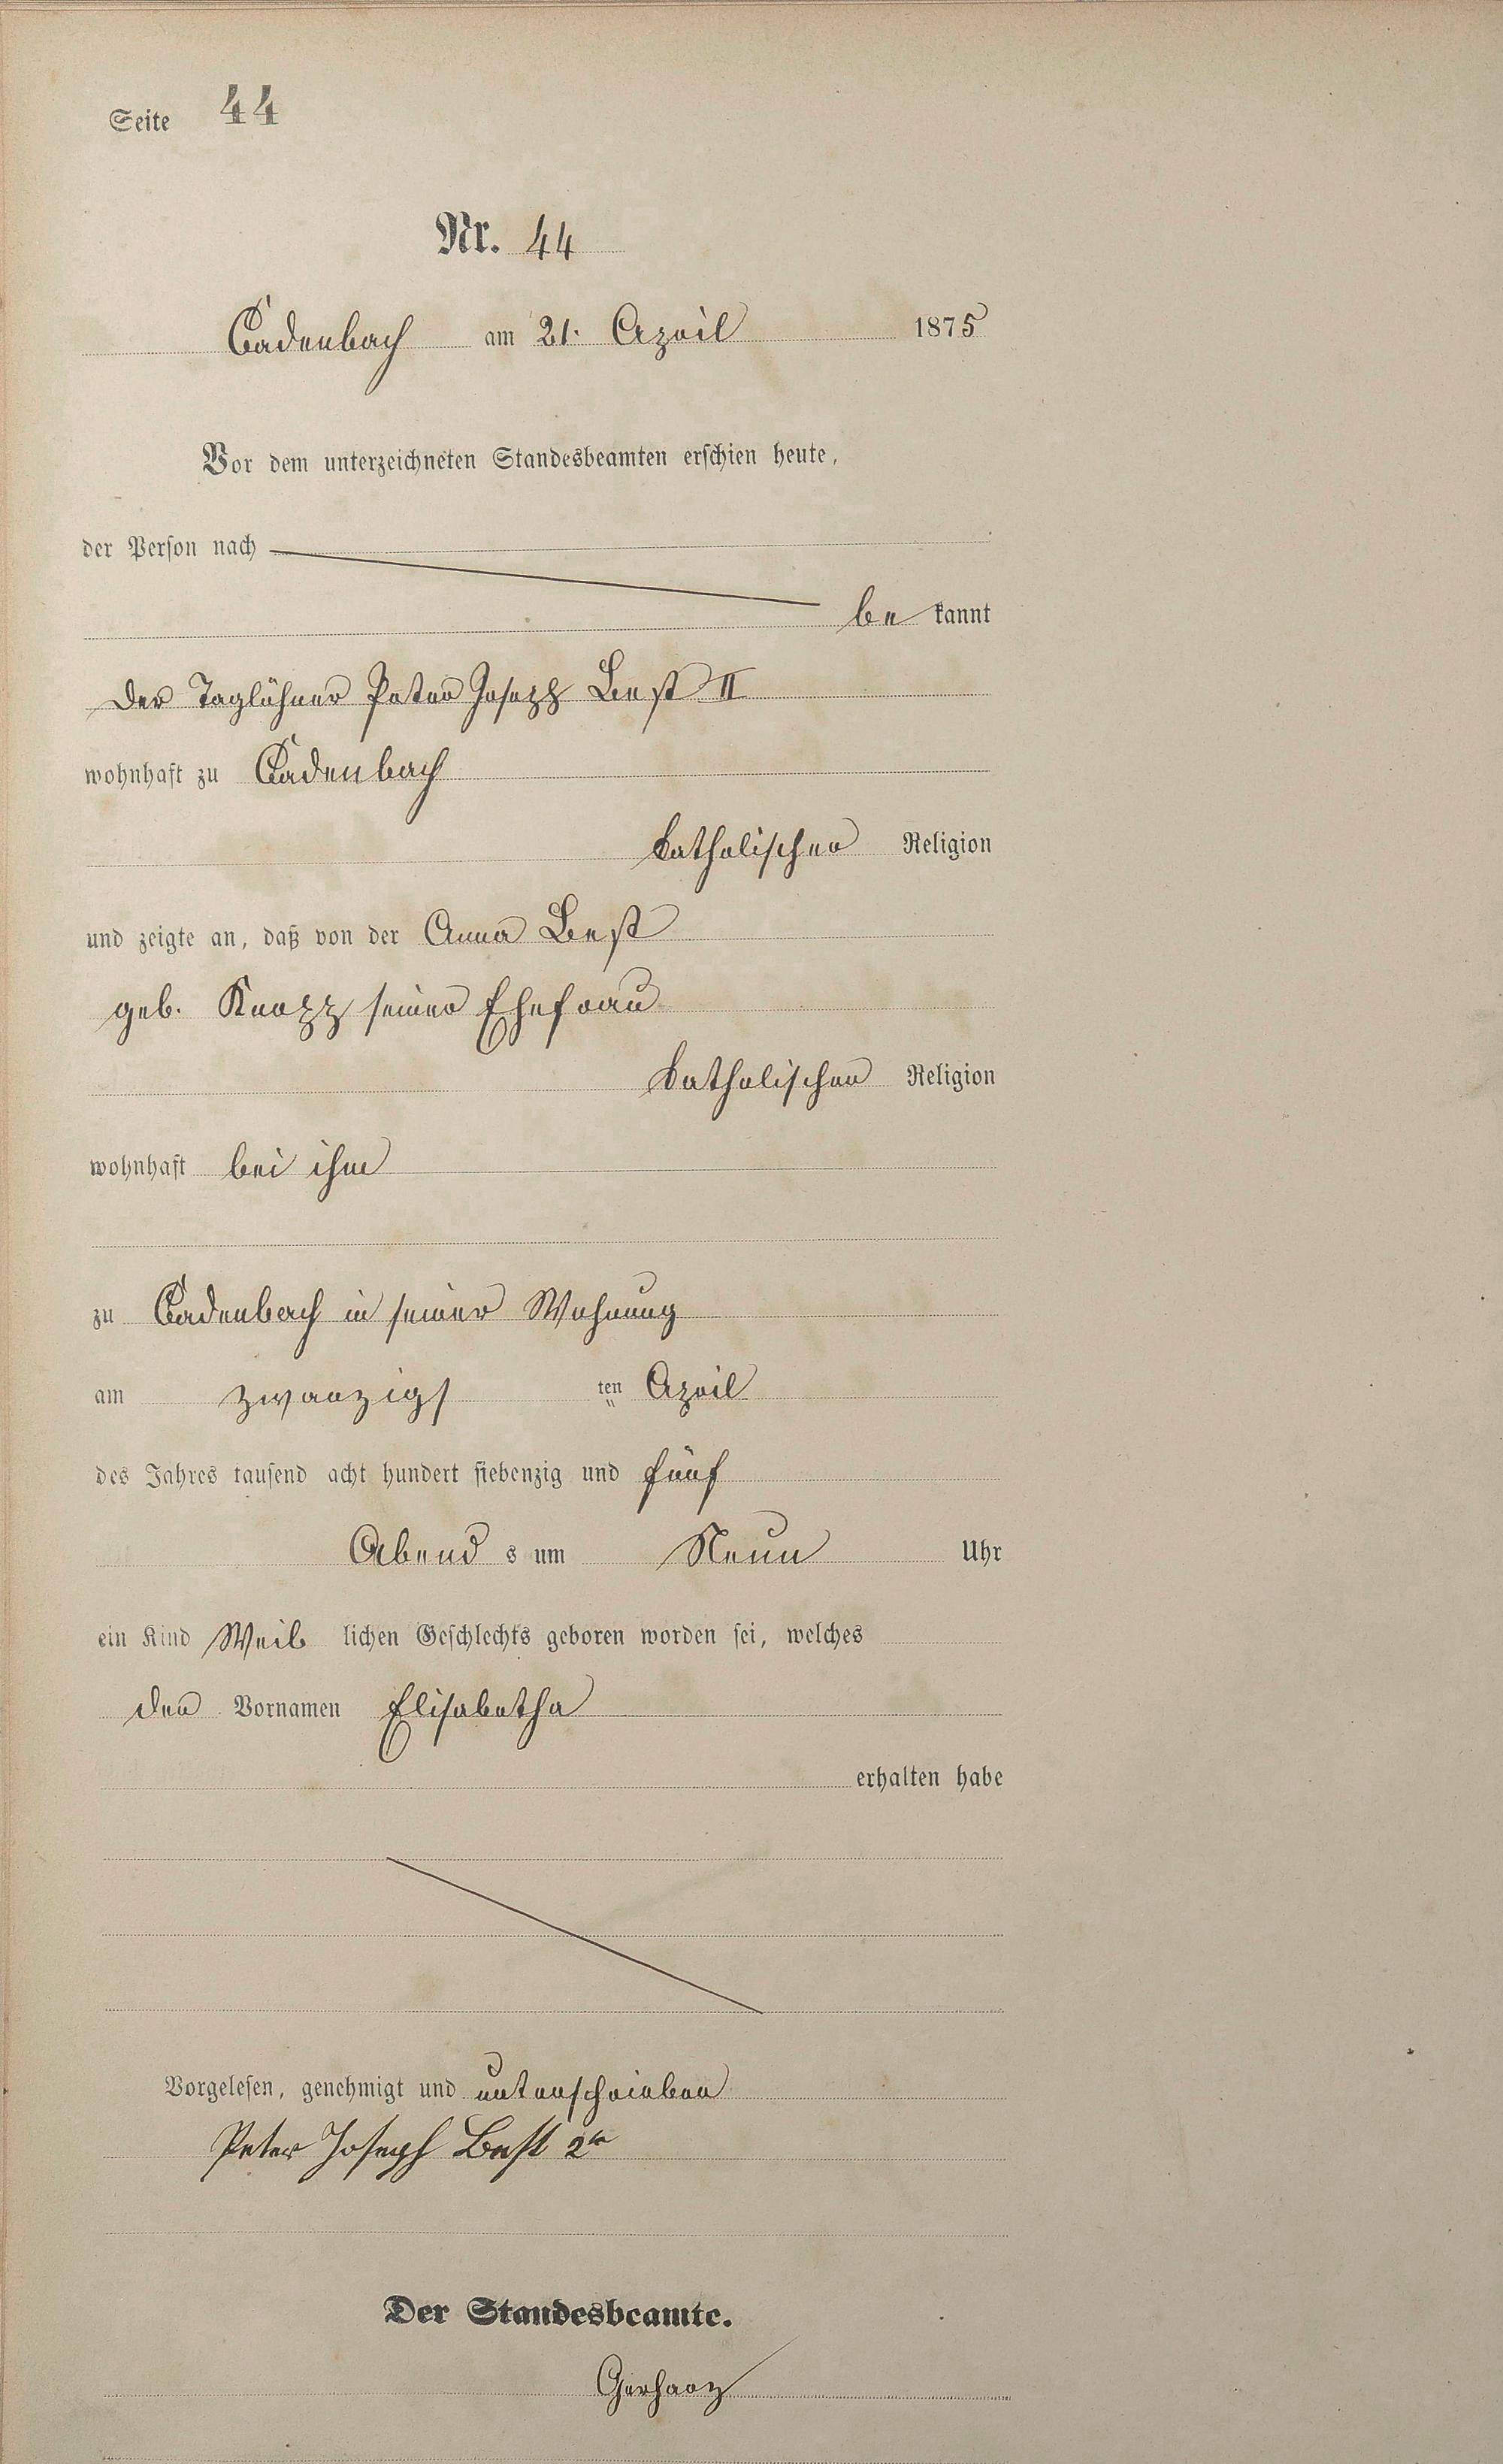 Seite 44
Nr. 44
Cadenbach am 21. April 1875
Vor dem unterzeichneten Standesbeamten erschien heute,
der Person nach
be kannt
der Taglöhner Peter Joseph Best II
wohnhaft zu Cadenbach
katholischer Religion
und zeigte an, daß von der Anna Best
geb. Knopp seiner Ehefrau
katholischer Religion
wohnhaft bei ihm
zu Cadenbach in seiner Wohnung
am zwanzigs ten April
des Jahres tausend acht hundert siebenzig und fünf
Abend s um Neun Uhr
ein Kind Weib lichen Geschlechts geboren worden sei, welches
den Vornamen Elisabetha
erhalten habe
Vorgelesen, genehmigt und unterschrieben
Peter Joseph Best 2te
Der Standesbeamte.
Gerharz